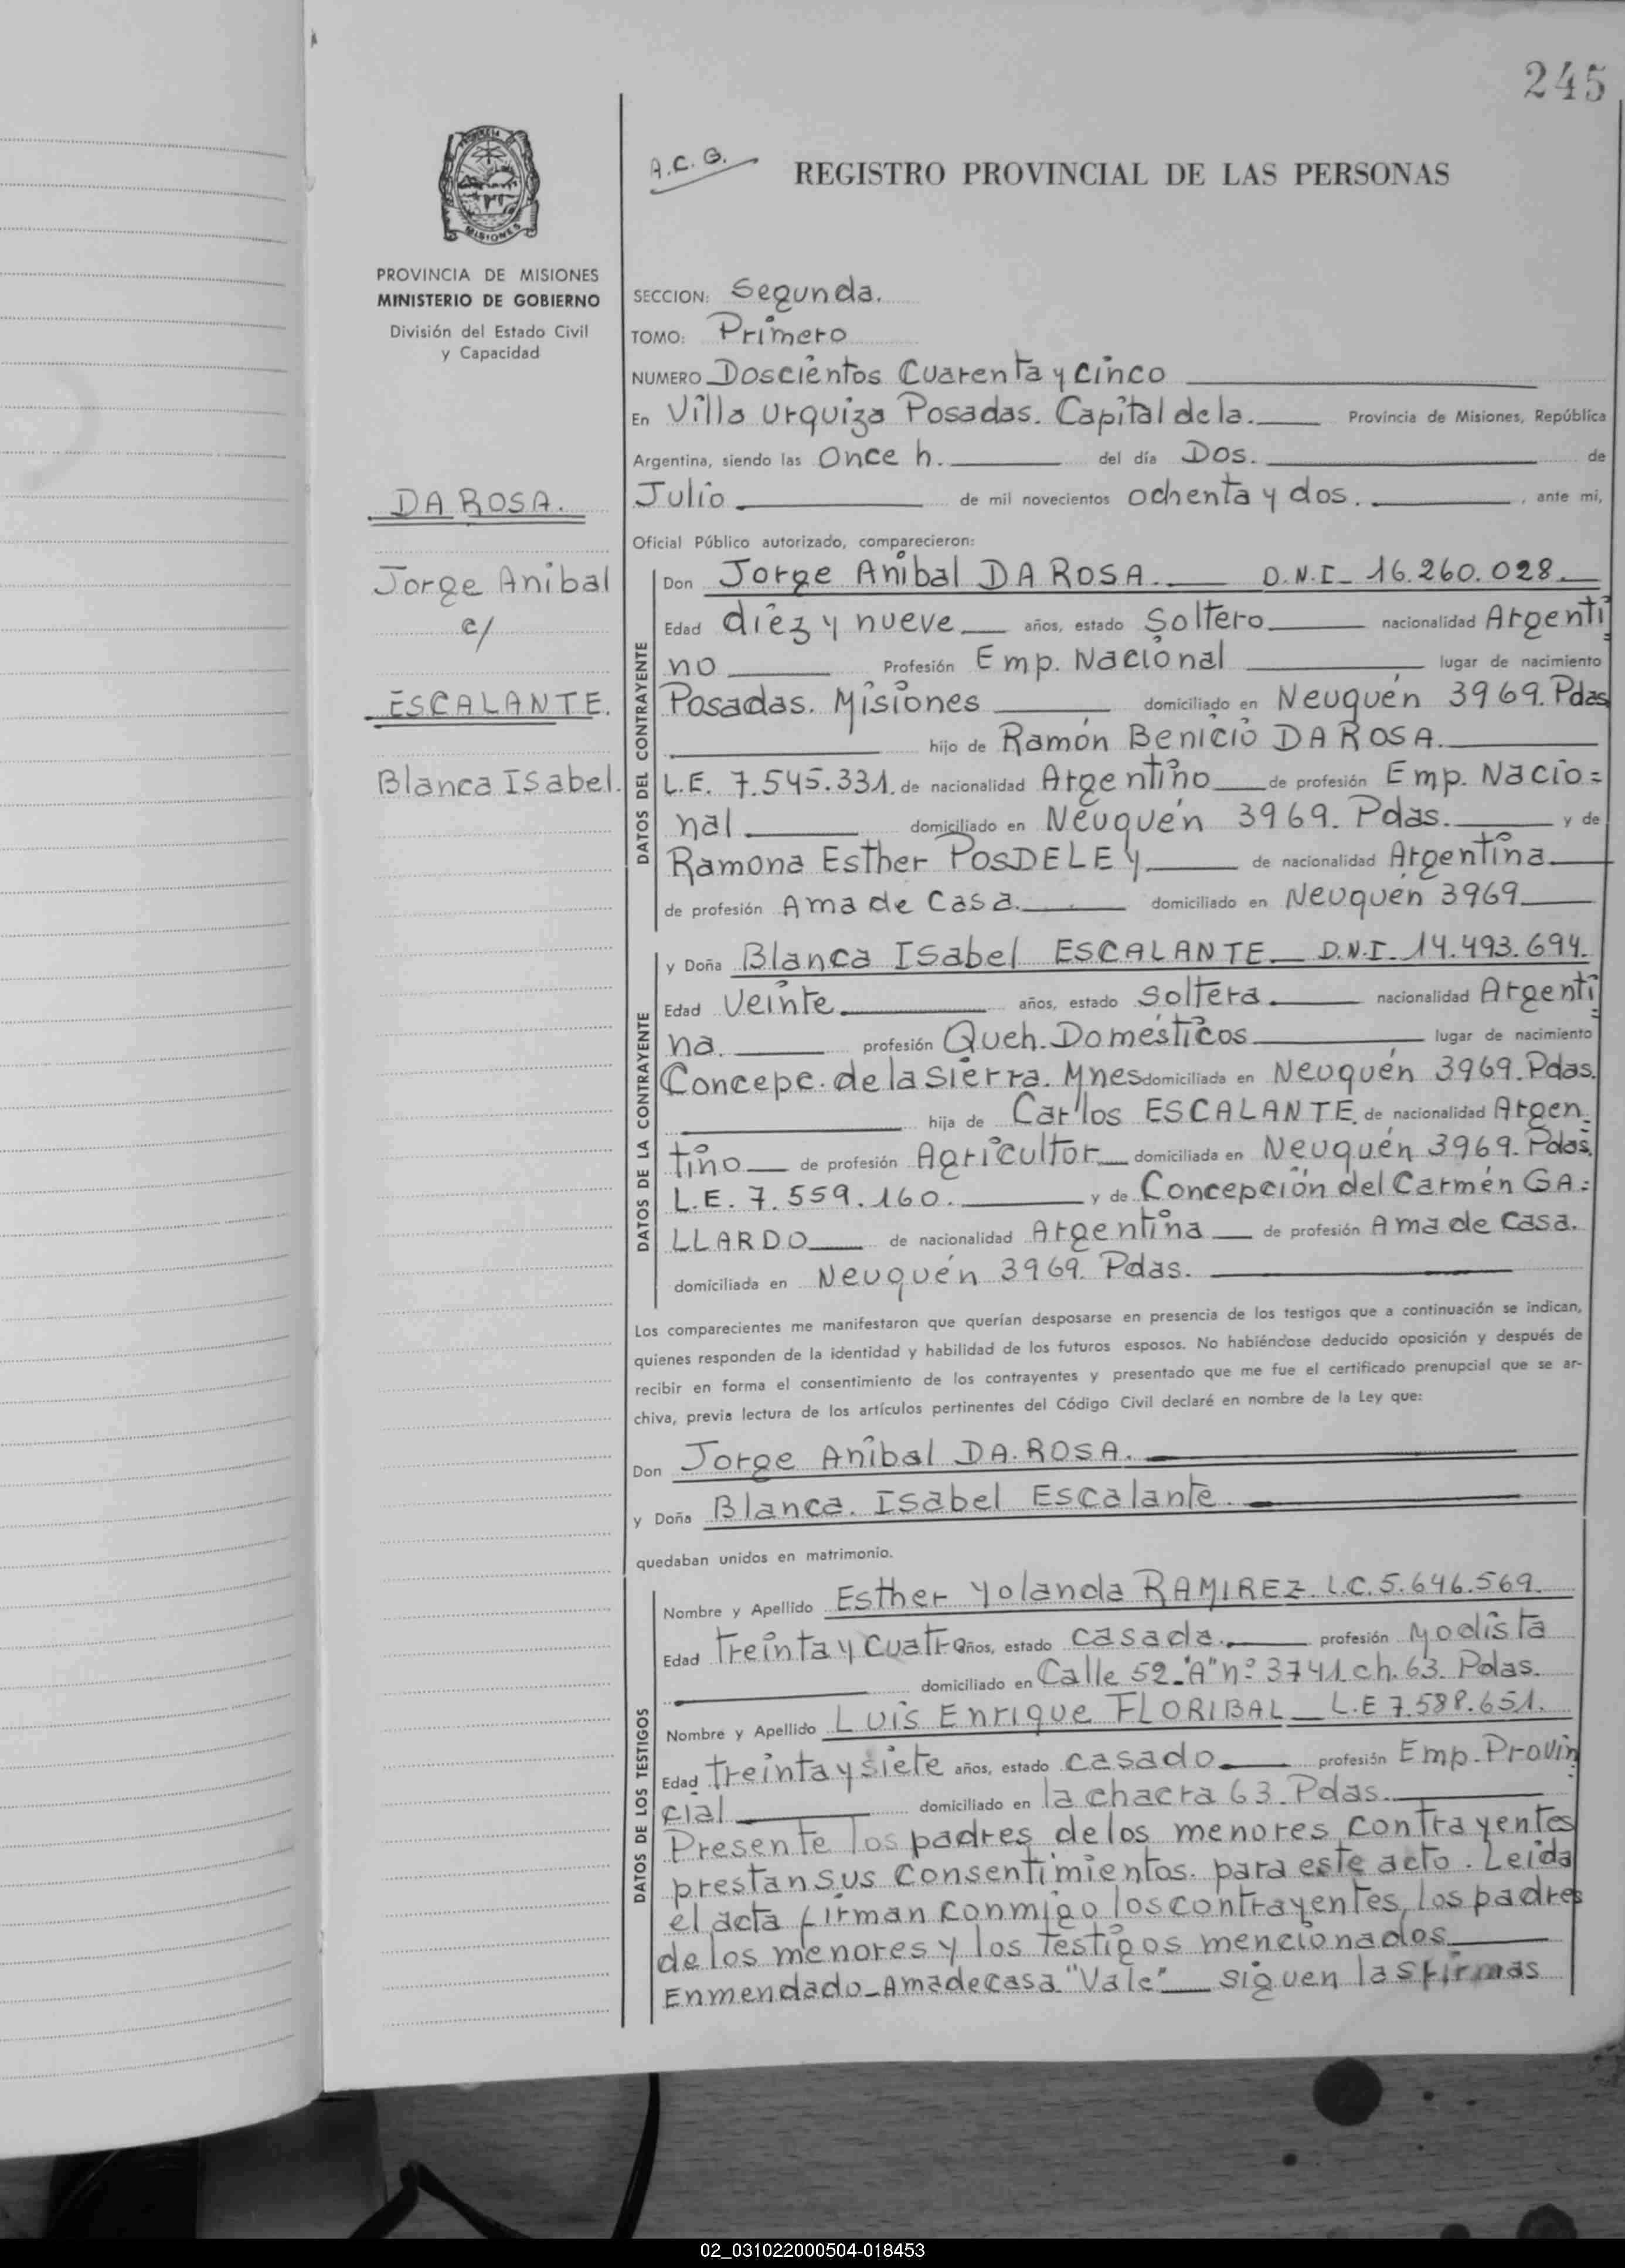 245
A.C.G.
REGISTRO PROVINCIAL DE LAS PERSONAS
PROVINCIA DE MISIONES
MINISTERIO DE GOBIERNO
División del Estado Civil
y Capacidad
DA ROSA.
Jorge Anibal
c/
ESCALANTE.
Blanca Isabel.
SECCION: Segunda.
TOMO: Primero
NUMERO Doscientos Cuarenta y cinco
En Villa Urquiza Posadas. Capital de la. Provincia de Misiones, República
Argentina, siendo las Once h. del día Dos. de
Julio de mil novecientos ochenta y dos. , ante mi,
Oficial Público autorizado, comparecieron:
DATOS DEL CONTRAYENTE
Don Jorge Anibal DA ROSA. D.N.I_ 16.260.028.
Edad diez y nueve años, estado Soltero nacionalidad Argenti
no Profesión Emp. Nacional lugar de nacimiento
Posadas. Misiones domiciliado en Neuquén 3969. Pdas
hijo de Ramón Benicio DA ROSA.
L.E. 7.545.331. de nacionalidad Argentino de profesión Emp. Nacio=
nal domiciliado en Neuquén 3969. Pdas. y de
Ramona Esther POSDELEY de nacionalidad Argentina
de profesión Ama de Casa. domiciliado en Neuquén 3969
DATOS DE LA CONTRAYENTE
y Doña Blanca Isabel ESCALANTE D.N.I_ 14.493.694.
Edad Veinte años, estado Soltera nacionalidad Argenti
na. profesión Queh. Domésticos lugar de nacimiento
Concepc. de la Sierra. Mnes domiciliada en Neuquén 3969. Pdas.
hija de Carlos ESCALANTE. de nacionalidad Argen
tino de profesión Agricultor domiciliada en Neuquén 3969. Pdas.
L.E. 7.559.160. y de Concepción del Carmén GA=
LLARDO de nacionalidad Argentina de profesión Ama de casa.
domiciliada en Neuquén 3969. Pdas.
Los comparecientes me manifestaron que querían desposarse en presencia de los testigos que a continuación se indican,
quienes responden de la identidad y habilidad de los futuros esposos. No habiéndose deducido oposición y después de
recibir en forma el consentimiento de los contrayentes y presentado que me fue el certificado prenupcial que se ar-
chiva, previa lectura de los artículos pertinentes del Código Civil declaré en nombre de la Ley que:
Don Jorge Anibal DA.ROSA.
y Doña Blanca. Isabel Escalante.
quedaban unidos en matrimonio.
DATOS DE LOS TESTIGOS
Nombre y Apellido Esther Yolanda RAMIREZ. L.C. 5.646.569.
Edad Treinta y cuatro años, estado casada. profesión Modista
domiciliado en Calle 52_"A" nº 3741. ch. 63. Pdas.
Nombre y Apellido Luis Enrique FLORIBAL _ L.E 7.588.651.
Edad treinta y siete años, estado casado profesión Emp. Provin
cial domiciliado en la chacra 63. Pdas.
Presente los padres de los menores contrayentes
prestan sus consentimientos. para este acto. Leida
el acta firman conmigo los contrayentes, los padres
de los menores y los testigos mencionados.
Enmendado_Ama de casa "Vale" siguen las firmas
02_031022000504-018453